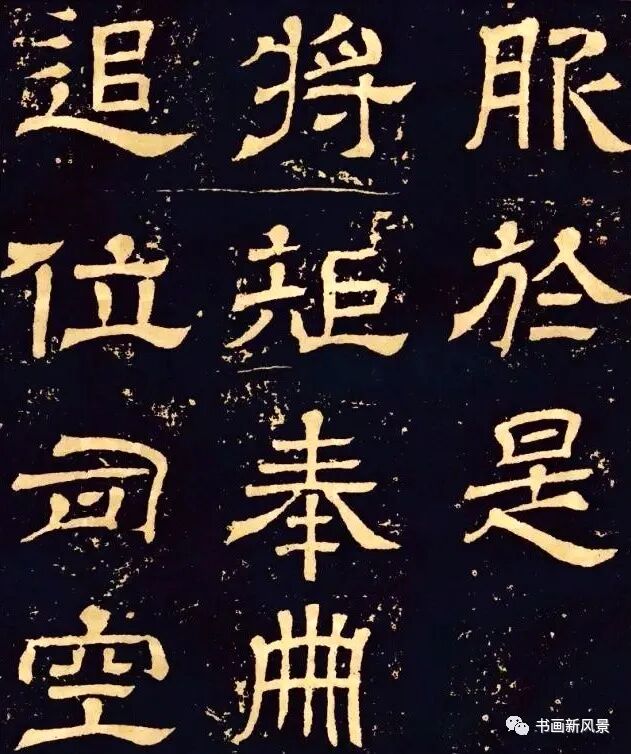 服於是
將矩奉典
追位司空
书画新风景